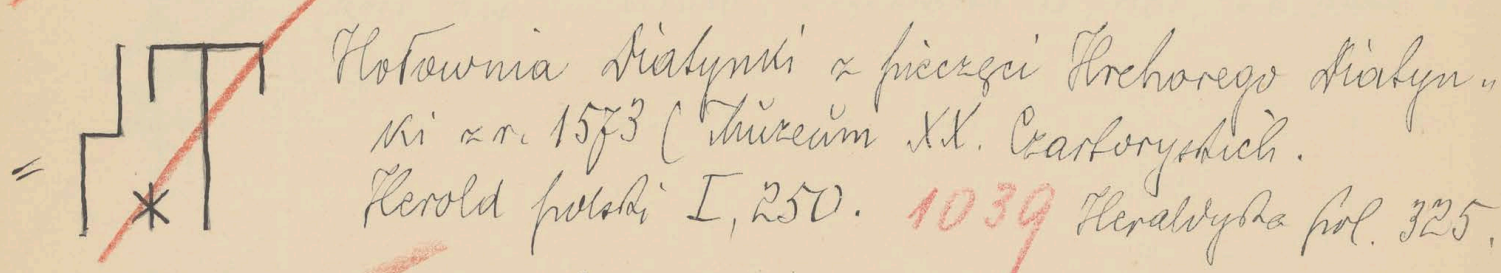 Hołownia Diatynki z pieczęci Hrehorego Diatyn„
ki z r. 1573 (Muzeum XX. Czartoryskich.
Herold polski I, 250. 1039 Heraldyka pol. 325.